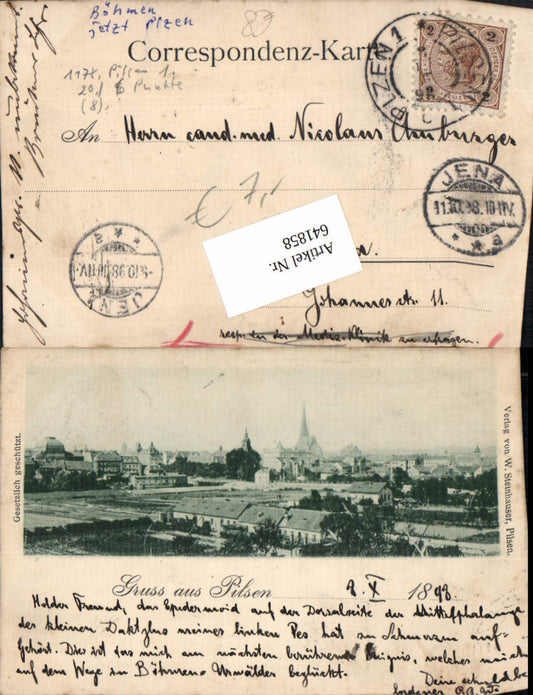 Böhmen
jetzt Plzen
Correspondenz-Karte
1178, Pilsen 1.
20 f 6 Punkte
(8).
PLZEN 1
PILSEN
2 2
2 2
An Herrn cand. med. Nicolaus
JENA
11.10.98.10-11V.
* * a
€ 7,-
Artikel Nr.
641858
JENA
9.10.98
* * a
Johannesstr. 11.
resp. in der Mediz. Klinik zu erfragen.
Gesetzlich geschützt.
Verlag von W. Steinhauser, Pilsen.
Gruss aus Pilsen 8. X 1898
Holder Freund, das Epidermoid auf der Dorsalseite der Mittelphalange
des kleinen Daktylus meines linken Pes hat zu schmerzen auf-
gehört. Dies ist das mich am nächsten berührende Ereignis, welches mich
auf dem Wege in Böhmens Urwälder beglückt.
Deine